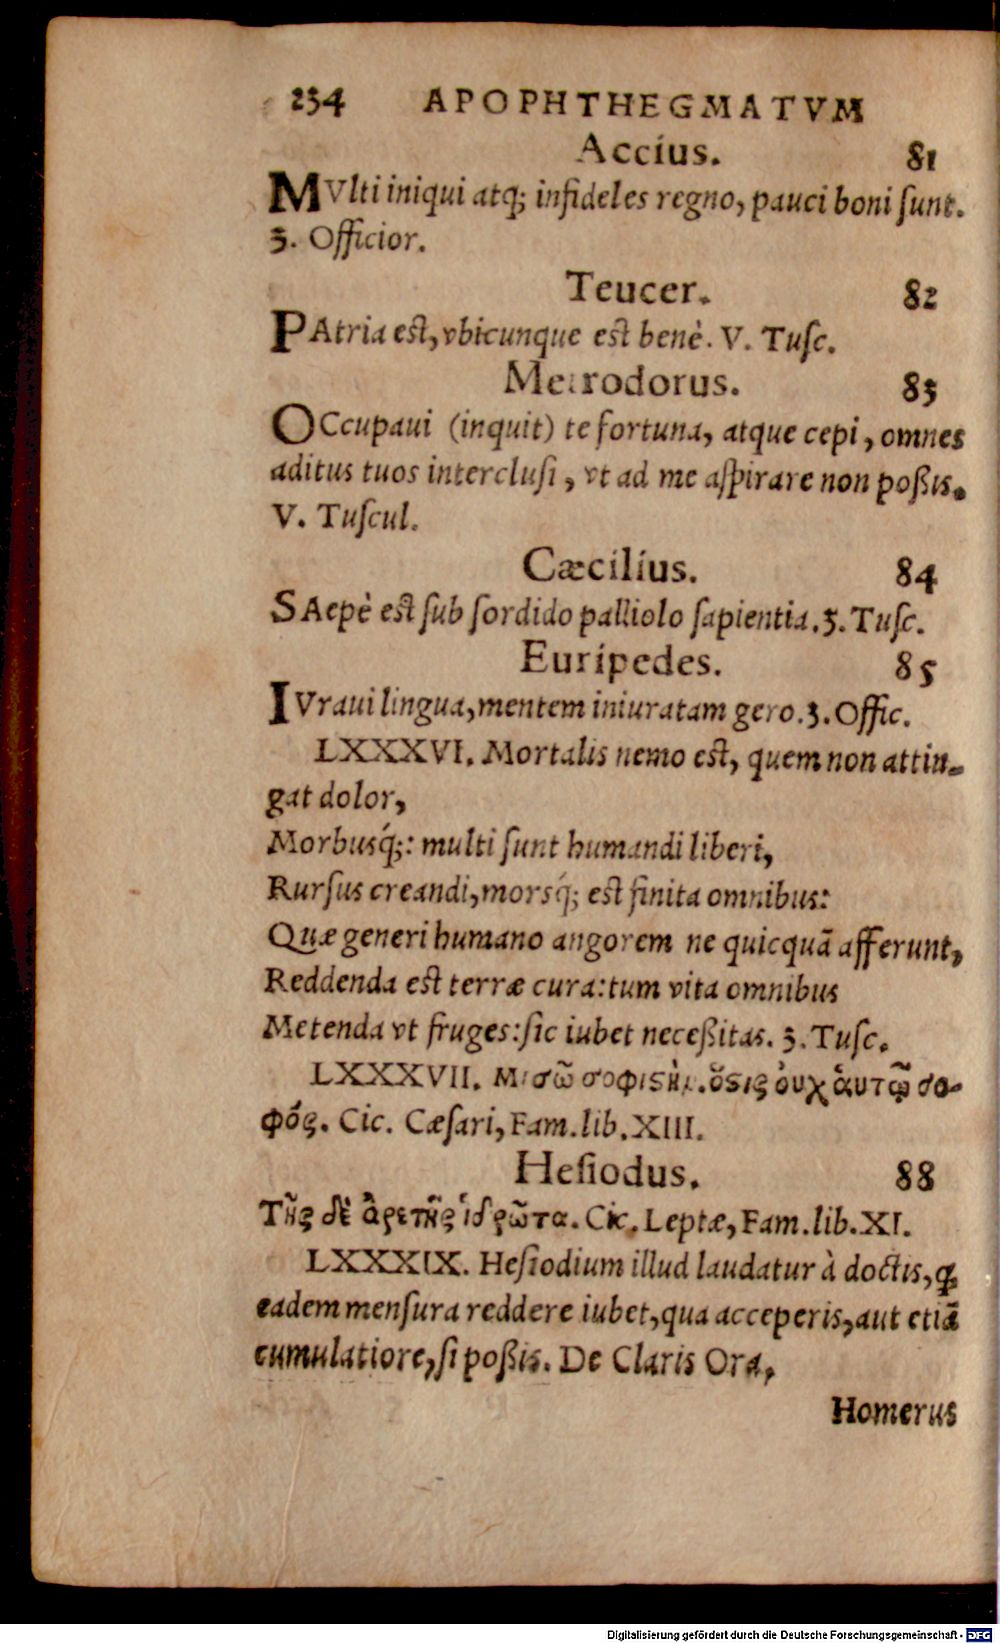 234 APOPHTHEGMATVM
Accius. 81
MVlti iniqui atq; infideles regno, pauci boni ſunt.
3. Officior.
Teucer. 82
PAtria est, vbicunque est benè. V. Tuſc.
Metrodorus. 83
OCcupaui (inquit) te fortuna, atque cepi, omnes
aditus tuos interclusi, vt ad me aſpirare non poßis.
V. Tuſcul.
Cæcilius. 84
SAepè est ſub ſordido palliolo ſapientia. 3. Tuſc.
Euripedes. 85
IVraui lingua, mentem iniuratam gero. 3. Offic.
LXXXVI. Mortalis nemo est, quem non attin-
gat dolor,
Morbusq́;: multi ſunt humandi liberi,
Rurſus creandi, morsq́; est finita omnibus:
Quæ generi humano angorem ne quicquā afferunt,
Reddenda est terræ cura: tum vita omnibus
Metenda vt fruges: ſic iubet neceßitas. 3. Tuſc.
LXXXVII. Μισῶ σοφιϛὴν. ὅϛις ὀυχ ἁυτῷ σο-
φός. Cic. Cæſari, Fam. lib. XIII.
Heſiodus. 88
Τῆς δὲ ἀρετῆς ἱδρῶτα. Cic. Leptæ, Fam. lib. XI.
LXXXIX. Heſiodium illud laudatur à doctis, ꝙ
eadem menſura reddere iubet, qua acceperis, aut etiā
cumulatiore, ſi poßis. De Claris Ora,
Homerus
Digitalisierung gefördert durch die Deutsche Forschungsgemeinschaft - DFG